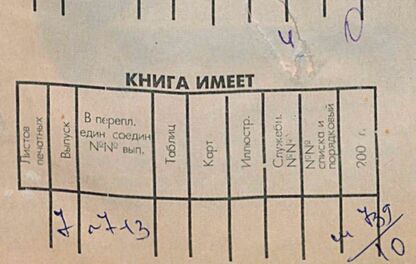 КНИГА ИМЕЕТ
Листов печатных
Выпуск
В перепл.
един. соедин.
№№ вып.
Таблиц
Карт
Иллюстр.
Служебн. №№
№№ списка и порядковый
200 г.
7
739
10